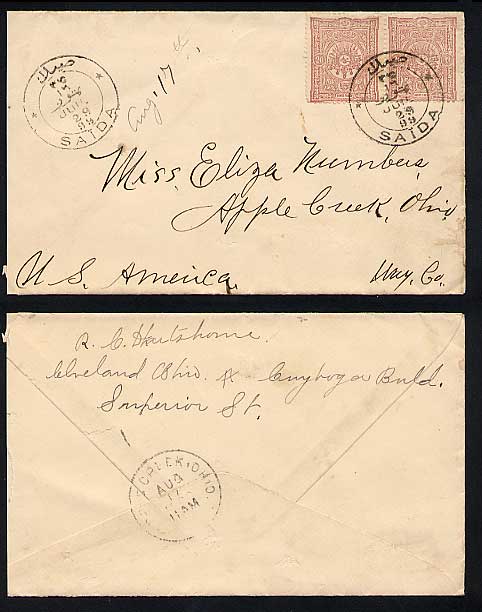 صيدا
JUIL
29
99
SAÏDA
Aug, 17
صيدا
JUIL
29
99
SAÏDA
Miss, Eliza Numbers,
Apple Creek, Ohio,
U. S. America,
Way, Co.
R. C.
Cleveland Ohio. Cuyhoga Buld.
Superior St.
OHIO.
AUG
17
11AM